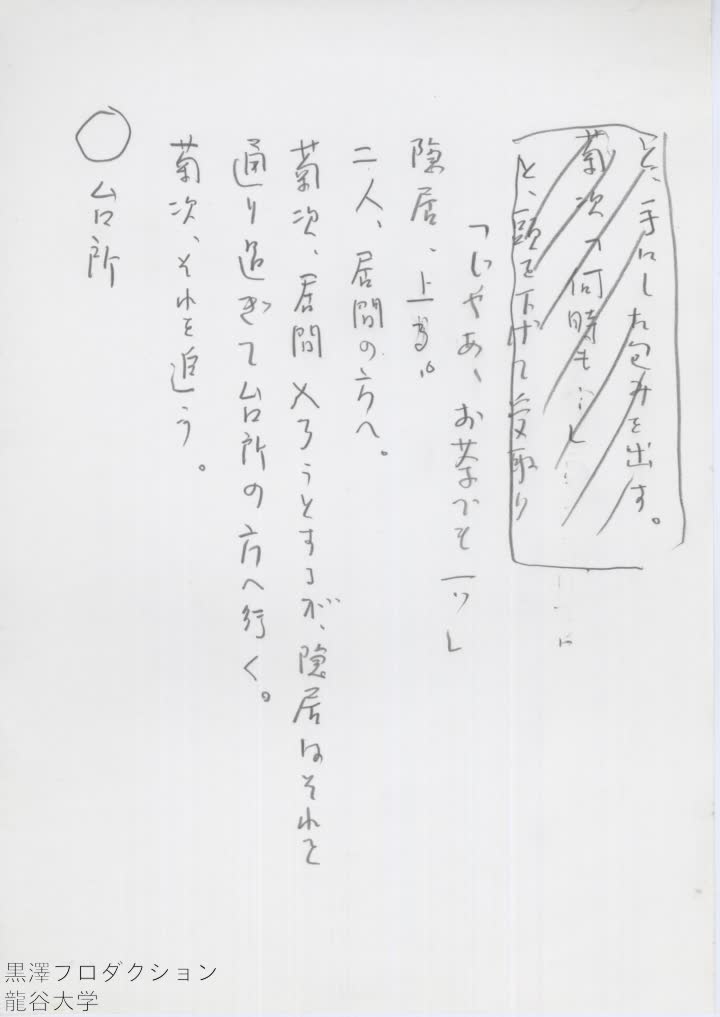 と、手にした包みを出す。
菊次「何時も……」
と、頭を下げて受取り
「じゃあ、お茶でも一つ」
隠居、上る。
二人、居間の方へ。
菊次、居間へ入ろうとするが、隠居はそれを
通り過ぎて台所の方へ行く。
菊次、それを追う。
○ 台所
黒澤プロダクション
龍谷大学